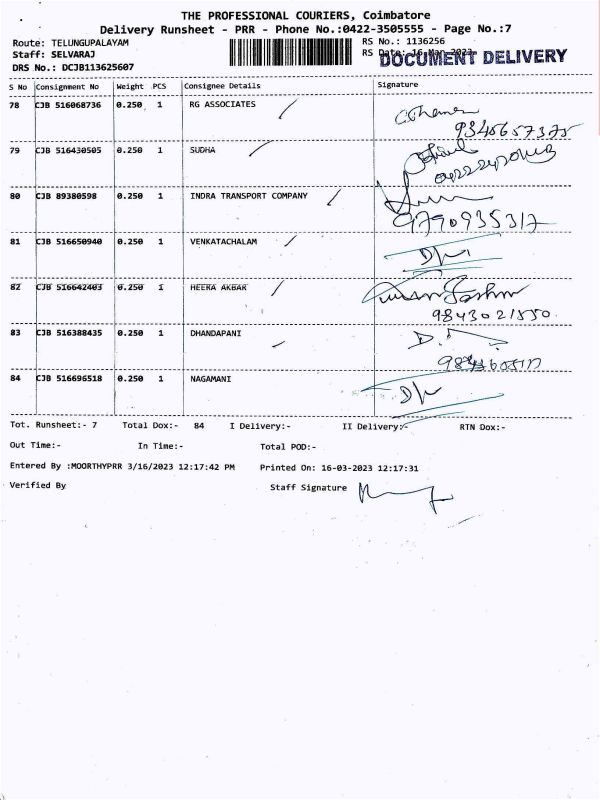 THE PROFESSIONAL COURIERS, Coimbatore
Delivery Runsheet - PRR - Phone No.:0422-3505555 - Page No.:7
Route: TELUNGUPALAYAM RS No.: 1136256
Staff: SELVARAJ RS Date: 16-Mar-2023
DOCUMENT DELIVERY
DRS No.: DCJB113625607
S No Consignment No Weight PCS Consignee Details Signature
78 CJB 516068736 0.250 1 RG ASSOCIATES
9345657375
79 CJB 516430505 0.250 1 SUDHA
80 CJB 89380598 0.250 1 INDRA TRANSPORT COMPANY
9790935317
81 CJB 516650940 0.250 1 VENKATACHALAM
82 CJB 516642403 0.250 1 HEERA AKBAR
9843021550
83 CJB 516388435 0.250 1 DHANDAPANI
84 CJB 516696518 0.250 1 NAGAMANI
Tot. Runsheet:- 7 Total Dox:- 84 I Delivery:- II Delivery:- RTN Dox:-
Out Time:- In Time:- Total POD:-
Entered By :MOORTHYPRR 3/16/2023 12:17:42 PM Printed On: 16-03-2023 12:17:31
Verified By Staff Signature